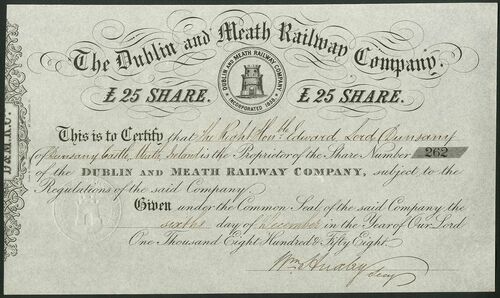 The Dublin and Meath Railway Company.
£25 SHARE.
DUBLIN AND MEATH RAILWAY COMPANY
INCORPORATED 1858.
£25 SHARE.
This is to Certify that The Right Honble Edward Lord Dunsany
of Dunsany Castle, Meath, Ireland is the Proprietor of the Share Number 262
of the DUBLIN AND MEATH RAILWAY COMPANY, subject to the
Regulations of the said Company.
Given under the Common Seal of the said Company the
sixth day of December in the Year of Our Lord
One Thousand Eight Hundred & Fifty Eight.
Wm
Secy